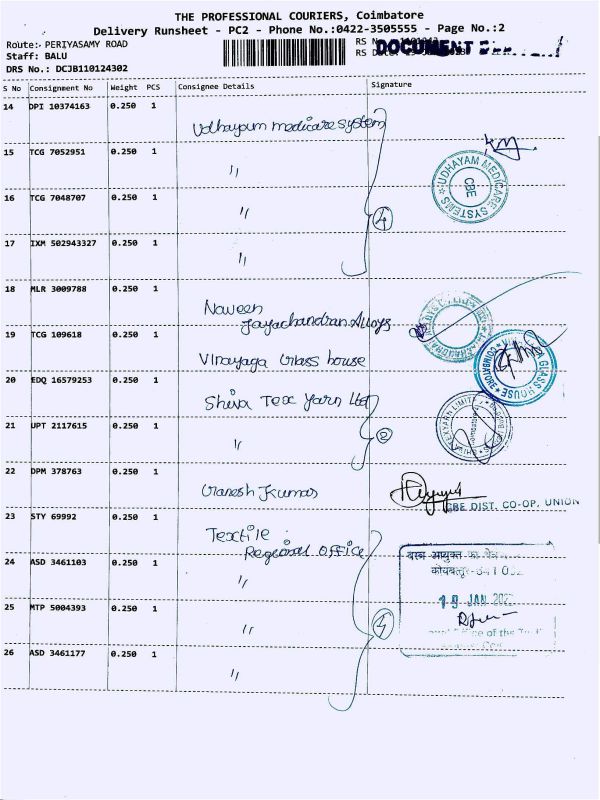 THE PROFESSIONAL COURIERS, Coimbatore
Delivery Runsheet - PC2 - Phone No.:0422-3505555 - Page No.:2
Route:- PERIYASAMY ROAD
Staff: BALU
DRS No.: DCJB110124302
RS
RS
DOCUMENT
S No Consignment No Weight PCS Consignee Details Signature
14 DPI 10374163 0.250 1
Udhayam medicare system
15 TCG 7052951 0.250 1 "
UDHAYAM MEDICARE SYSTEMS
CBE
16 TCG 7048707 0.250 1 "
4
17 IXM 502943327 0.250 1 "
18 MLR 3009788 0.250 1 Naveen
Jayachandran Alloys
19 TCG 109618 0.250 1 Vinayaga Glass house
GLASS HOUSE
COIMBATORE
20 EDQ 16579253 0.250 1 Shiva Tex Yarn Ltd
21 UPT 2117615 0.250 1 "
2
22 DPM 378763 0.250 1 Ganesh Kumar
CBE DIST. CO-OP. UNION
23 STY 69992 0.250 1 Textile
Regional Office
24 ASD 3461103 0.250 1 "
वस्त्र आयुक्त का
19 JAN
25 MTP 5004393 0.250 1 "
of the
26 ASD 3461177 0.250 1 "